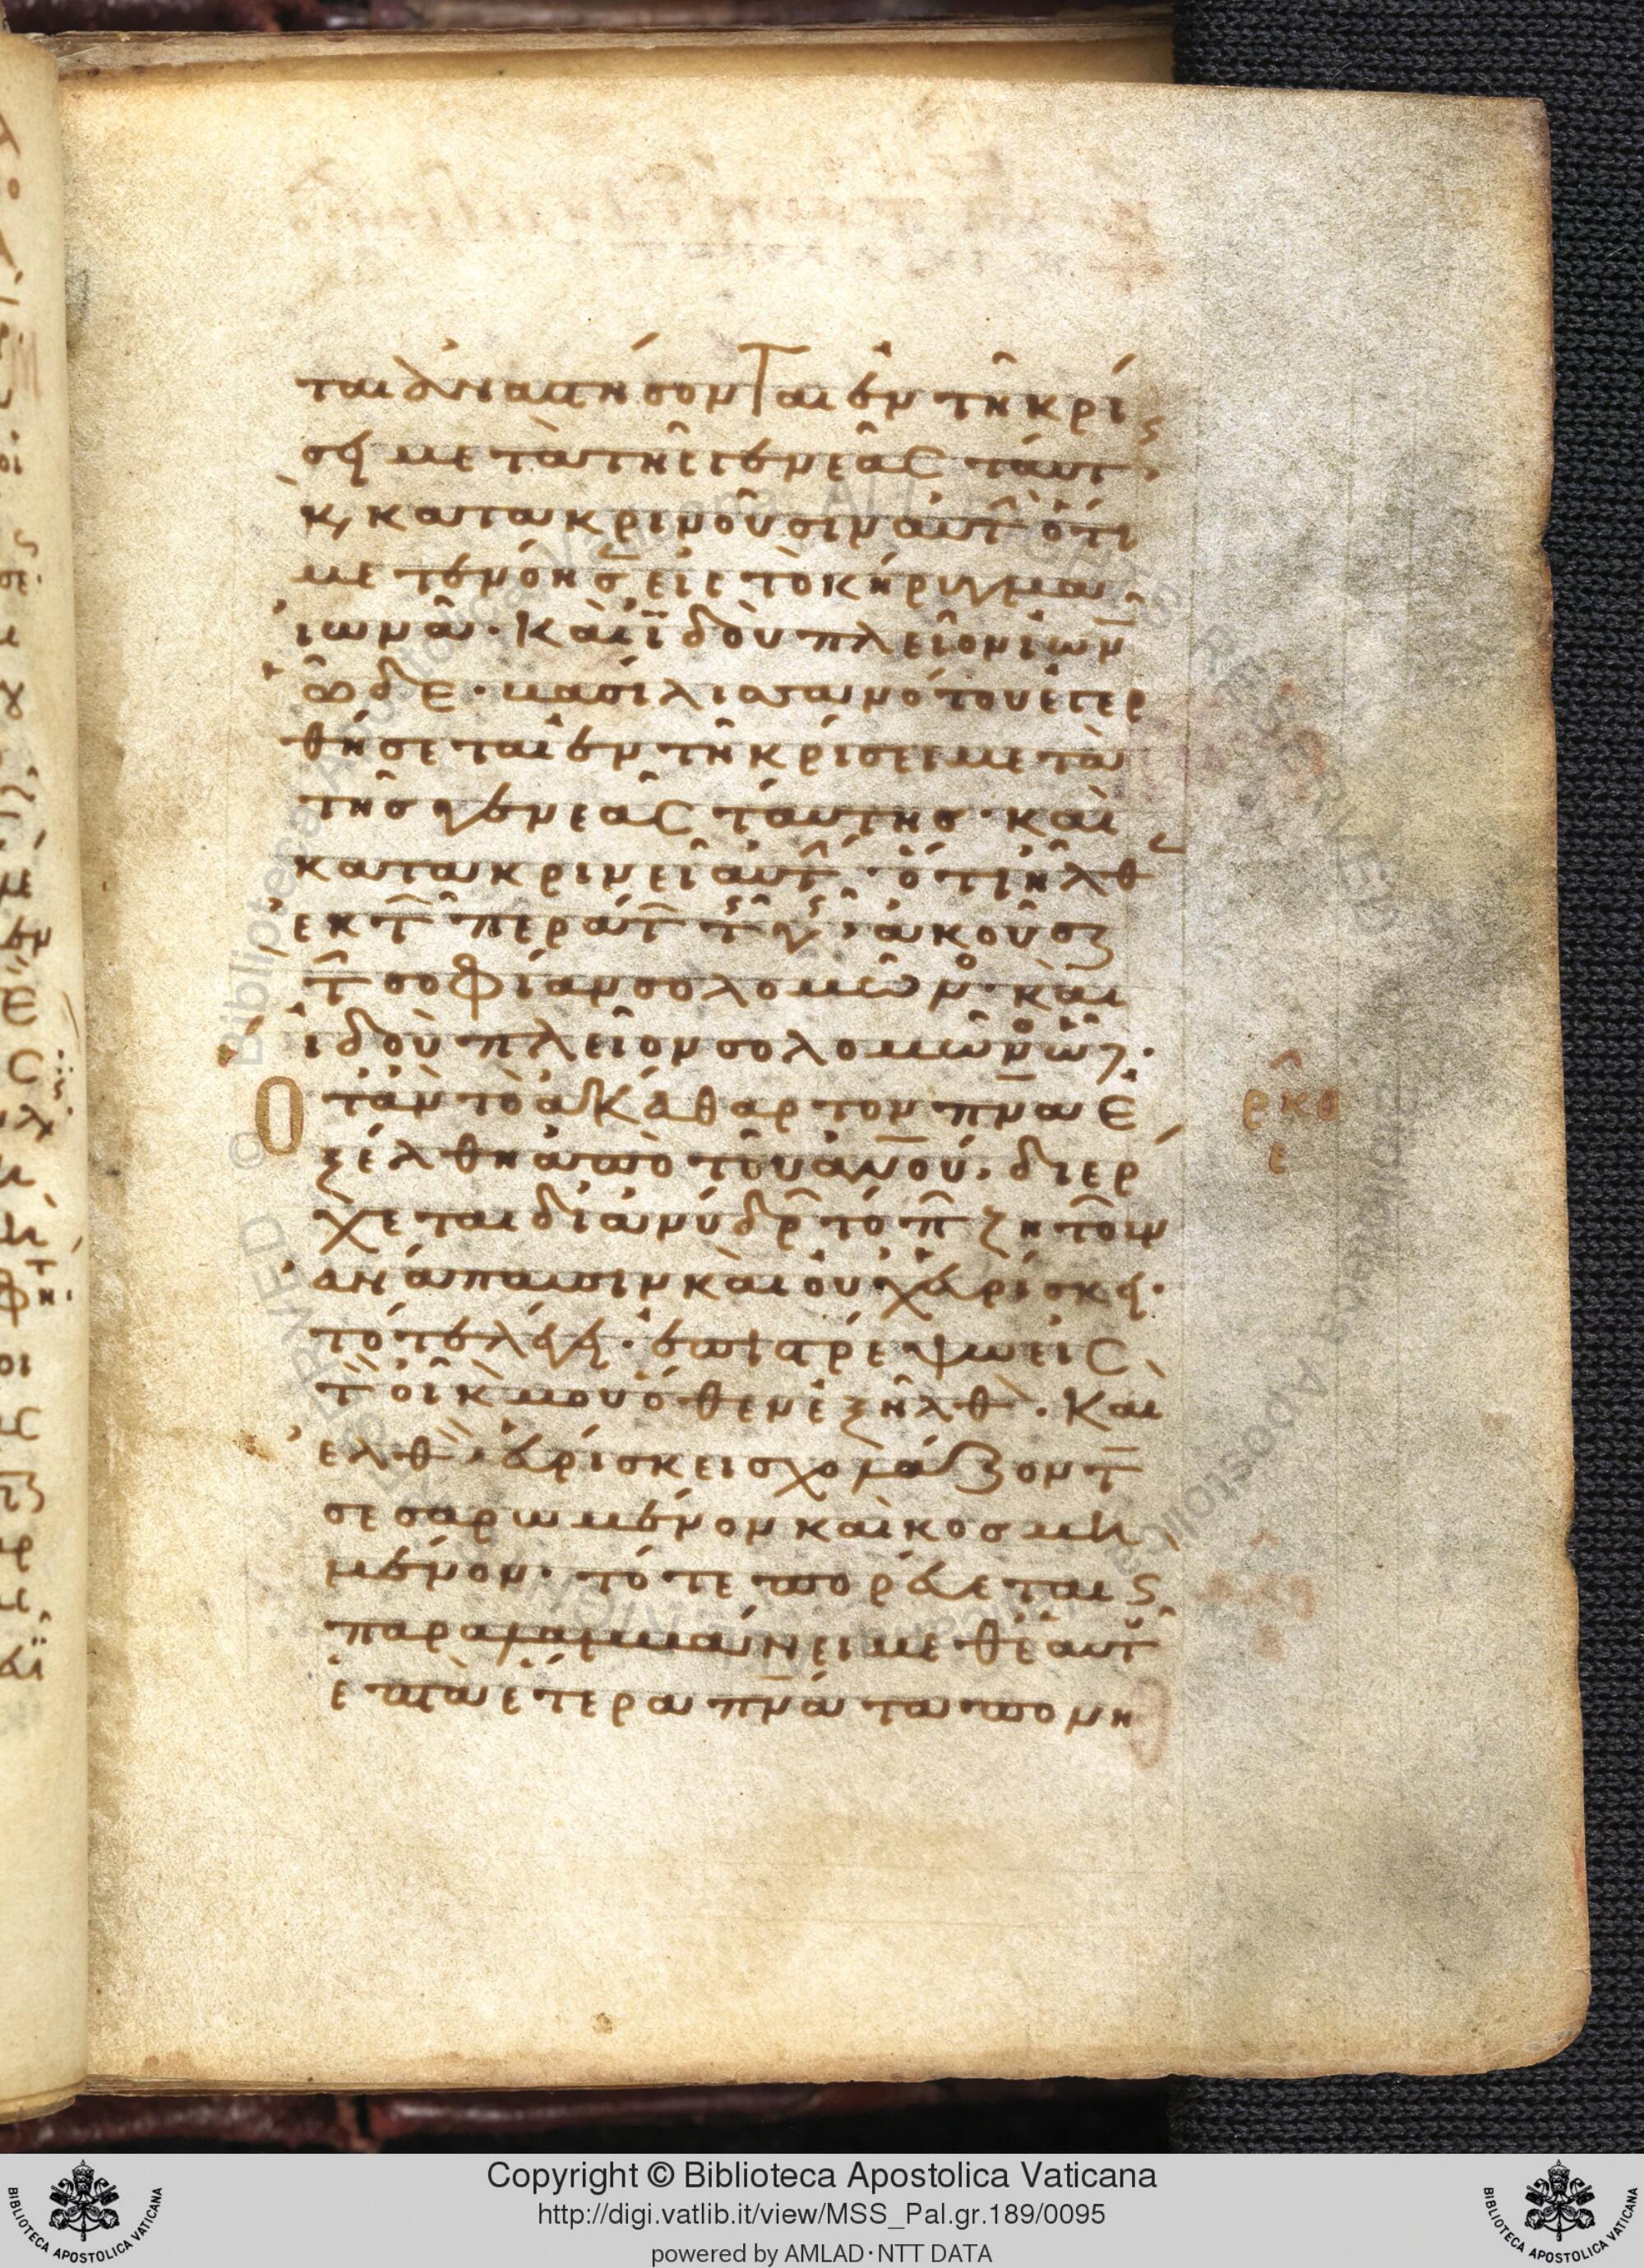 ται ἀναστήσονται ἐν τῆ κρί
σει μετὰ τῆς γενεᾶς ταύτ
κ, κατακρινοῦσιν αὐτ ὅτι
μετενόησ εἰς τὸ κήρυγμα
ιωνᾶ· Καὶ ἰδοὺ πλεῖον ἰων
ὧδε· βασίλισσα νότου ἐγερ
θήσεται ἐν τῆ κρίσει μετὰ
τῆς γενεᾶς ταύτης· καὶ
κατακρινεῖ αὐτ· ὅτι ἦλθ
ἐκ τ περάτ τ γ, ἀκοῦσαι
τ σοφίαν σολομῶν· καὶ
ἰδοὺ πλεῖον σολομῶν ὧδε·
Οταν τὸ ἀκάθαρτον πνα ἐ
ξέλθη ἀπὸ τοῦ ἀνου, διέρ
χεται δι ἀνύδρ τόπ ζητοῦν
ἀνάπαυσιν καὶ οὐχ εὑρίσκει·
τότε λέγει· ἐπιστρέψω εἰς
τ οἶκ μου ὅθεν ἐξῆλθ· Καὶ
ἐλθ, εὑρίσκει σχολάζοντ
σεσαρωμένον καὶ κοσμη
μένον· τότε πορεύεται κ,
παραλαμβάνει μεθ ἑαυτ
ἑπτὰ ἕτερα πνατα πονη
ρκθ
ε
Copyright © Biblioteca Apostolica Vaticana
http://digi.vatlib.it/view/MSS_Pal.gr.189/0095
powered by AMLAD·NTT DATA
BIBLIOTECA APOSTOLICA VATICANA
BIBLIOTECA APOSTOLICA VATICANA